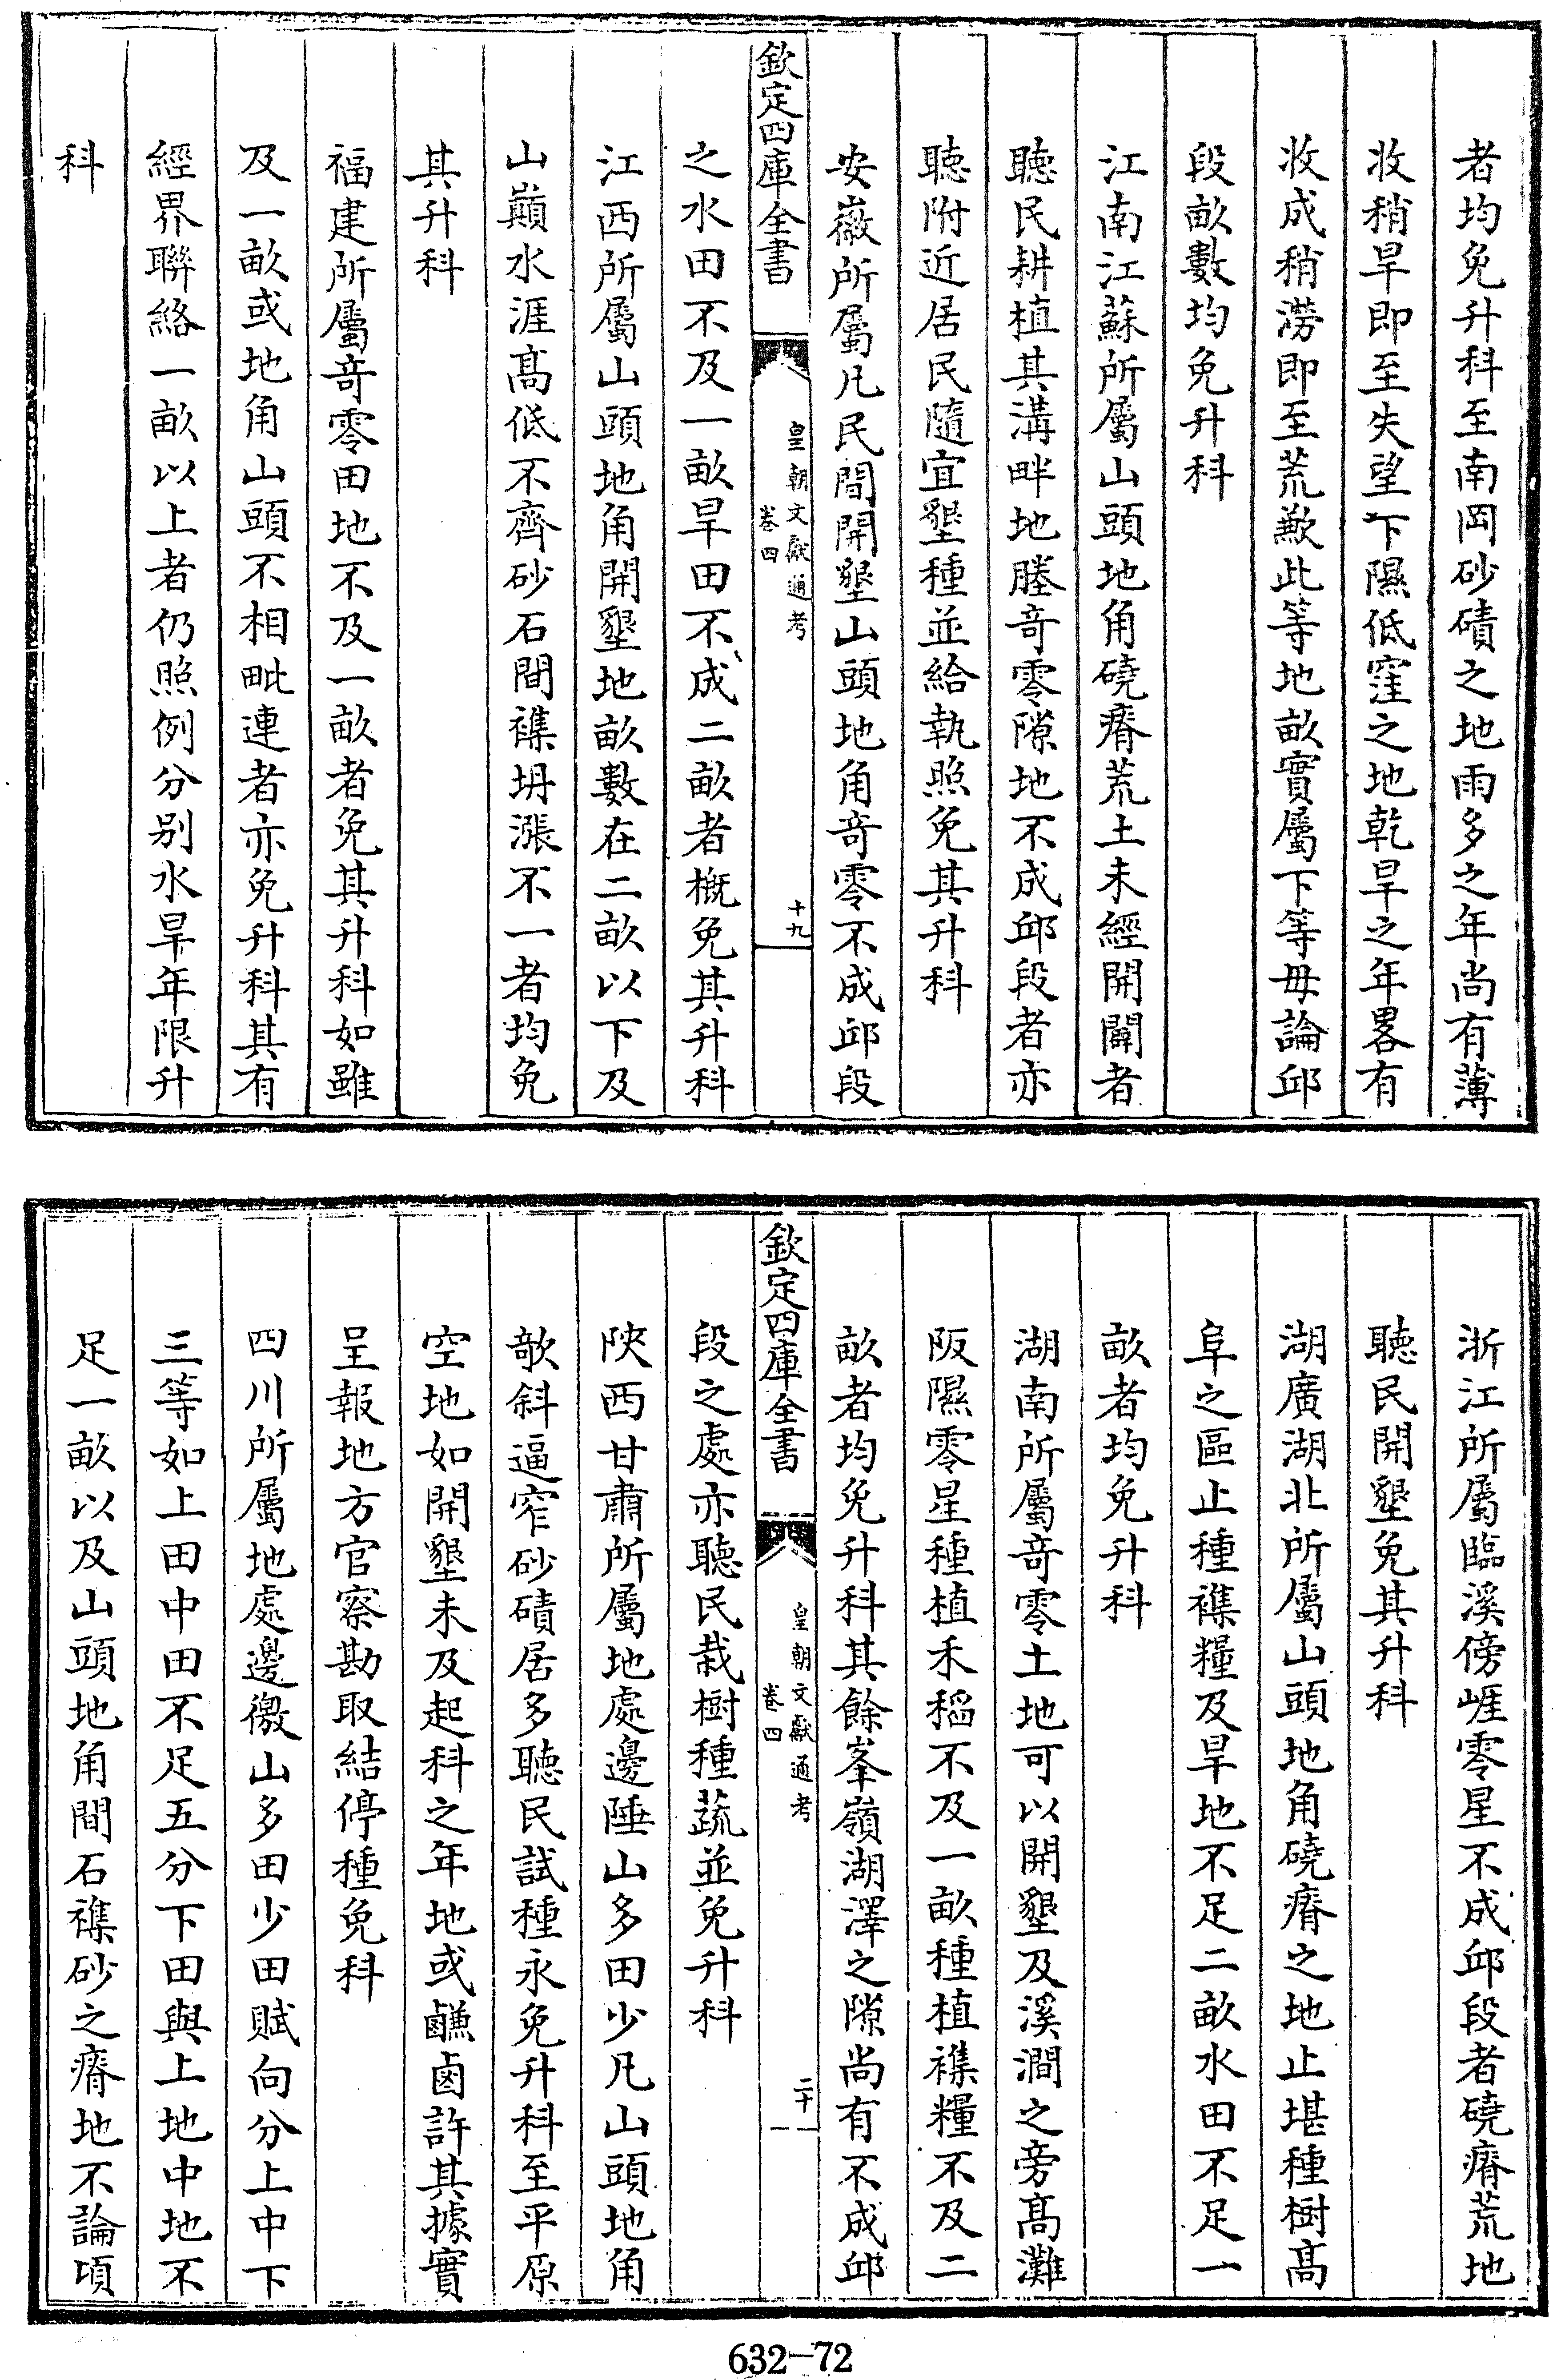 者均免升科至南岡砂磧之地雨多之年尚有薄
收稍旱即至失望下隰低窪之地乾旱之年畧有
收成稍澇即至荒歉此等地畝實屬下等毋論邱
段畝數均免升科
江南江蘇所屬山頭地角磽瘠荒土未經開闢者
聽民耕植其溝畔地塍竒零隙地不成邱段者亦
聽附近居民隨宜墾種並給執照免其升科
安徽所屬凡民間開墾山頭地角竒零不成邱段
欽定四庫全書
皇朝文獻通考
卷四
十九
之水田不及一畝旱田不成二畝者概免其升科
江西所屬山頭地角開墾地畝數在二畝以下及
山巔水涯髙低不齊砂石間襍坍漲不一者均免
其升科
福建所屬竒零田地不及一畝者免其升科如雖
及一畝或地角山頭不相毗連者亦免升科其有
經界聯絡一畝以上者仍照例分别水旱年限升
科
浙江所屬臨溪傍崕零星不成邱段者磽瘠荒地
聽民開墾免其升科
湖廣湖北所屬山頭地角磽瘠之地止堪種樹髙
阜之區止種襍糧及旱地不足二畝水田不足一
畝者均免升科
湖南所屬竒零土地可以開墾及溪澗之旁髙灘
阪隰零星種植禾稻不及一畝種植襍糧不及二
畝者均免升科其餘峯嶺湖澤之隙尚有不成邱
欽定四庫全書
皇朝文獻通考
卷四
二十
段之處亦聽民栽樹種蔬並免升科
陜西甘肅所屬地處邊陲山多田少凡山頭地角
欹斜逼窄砂磧居多聽民試種永免升科至平原
空地如開墾未及起科之年地或鹻鹵許其據實
呈報地方官察勘取結停種免科
四川所屬地處邊徼山多田少田賦向分上中下
三等如上田中田不足五分下田與上地中地不
足一畝以及山頭地角間石襍砂之瘠地不論頃
632-72